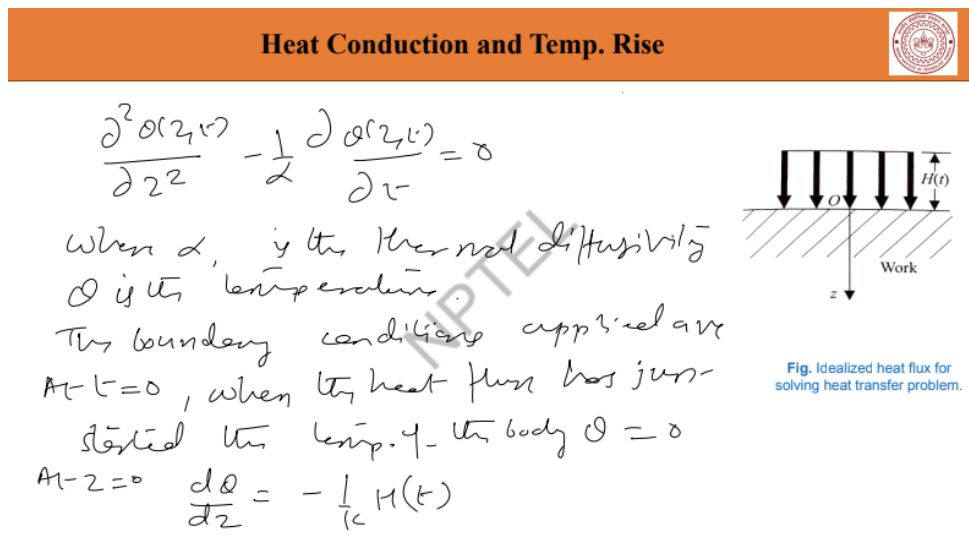 Heat Conduction and Temp. Rise
∂²θ(z,t)/∂z² - 1/α ∂θ(z,t)/∂t = 0
when α, is the thermal diffusivity
θ is the temperature.
The boundary conditions applied are
At t=0, when the heat flux has just
started the temp. of the body θ = 0
At z=0 dθ/dz = - 1/k H(t)
H(t)
O
Work
z
Fig. Idealized heat flux for
solving heat transfer problem.
NPTEL